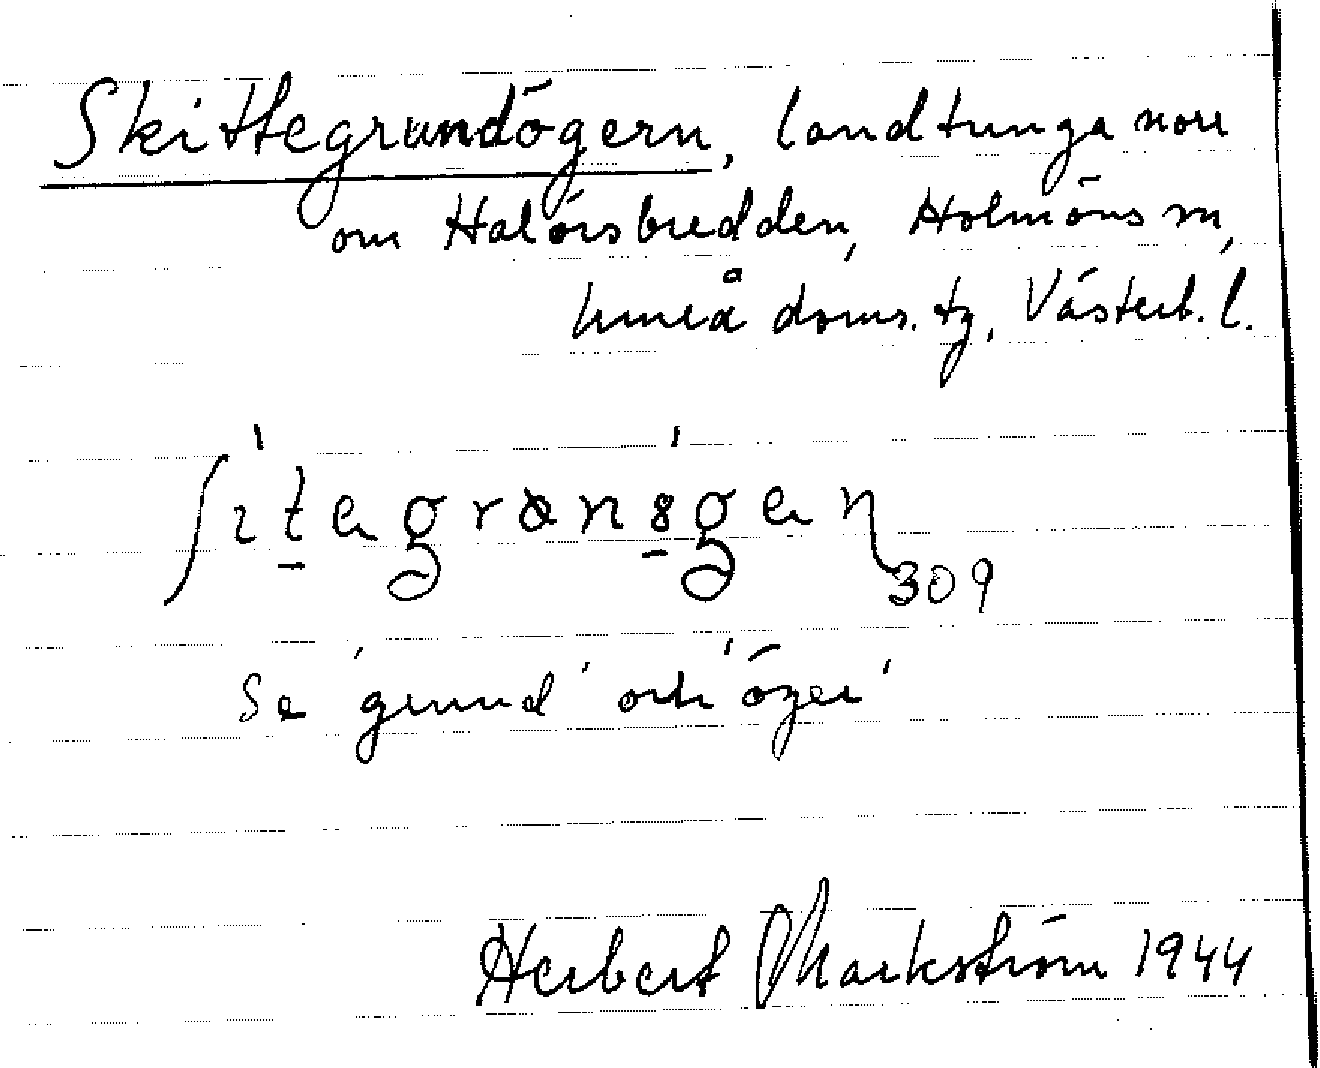 Skittegrundögern, landtunga norr
om Halörsbredden, Holmöns sn,
Umeå doms. tg, Västerb. l.
309
Se 'grund' och 'öger'
Herbert Markström 1944